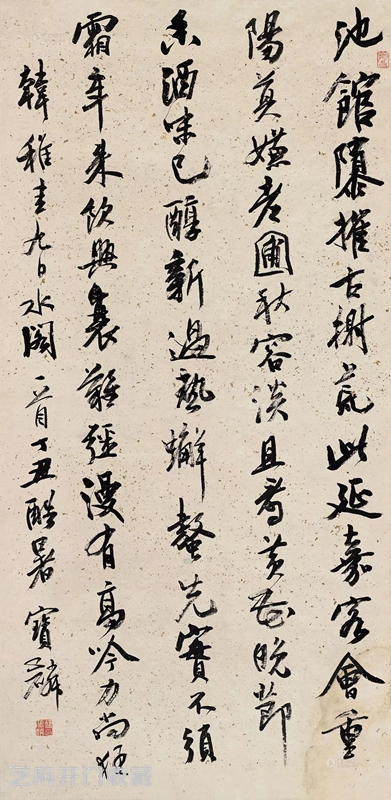 池館隳摧古榭荒此延嘉客會重
陽莫嫌老圃秋容淡且看黃花晚節
香酒味已醇新過熟蠏螯先實不須
霜年來飲興衰難彊漫有高吟力尚狂
韓稚圭九日水閣一首丁丑酷暑寶麟